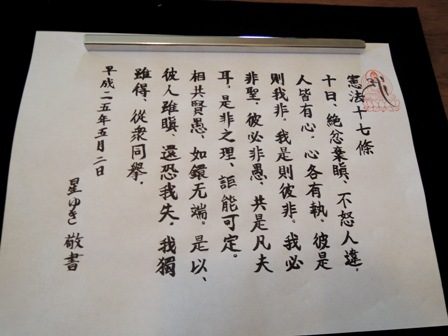 憲法十七條
十曰、絶忿棄瞋、不怒人違、
人皆有心。心各有執。彼是
則我非。我是則彼非。我必
非聖。彼必非愚。共是凡夫
耳。是非之理、詎能可定。
相共賢愚、如鐶无端。是以、
彼人雖瞋、還恐我失。我獨
雖得、從衆同擧。
平成二五年五月二日
星ゆき 敬書